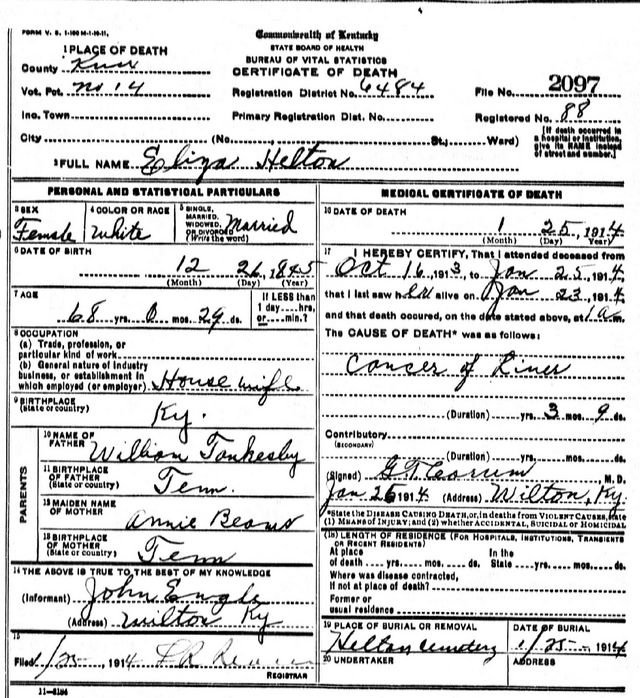 FORM V. S. 1-100 M-1-10-11.
Commonwealth of Kentucky
STATE BOARD OF HEALTH
BUREAU OF VITAL STATISTICS
CERTIFICATE OF DEATH
1 PLACE OF DEATH
County Knox
Vot. Pct. No 14
Registration District No. 6484
File No. 2097
Inc. Town
Primary Registration Dist. No.
Registered No. 88
City (No. St.; Ward)
[If death occurred in a hospital or institution, give its NAME instead of street and number.]
2 FULL NAME Eliza Helton
PERSONAL AND STATISTICAL PARTICULARS
3 SEX
Female
4 COLOR OR RACE
White
5 SINGLE, MARRIED, WIDOWED, OR DIVORCED (Write the word)
Married
6 DATE OF BIRTH
12 26, 1845
(Month) (Day) (Year)
7 AGE
68 yrs. 0 mos. 29 ds.
If LESS than 1 day....hrs, or....min.?
8 OCCUPATION
(a) Trade, profession, or particular kind of work
(b) General nature of industry
business, or establishment in
which employed (or employer) House wife
9 BIRTHPLACE
(State or country)
Ky.
PARENTS
10 NAME OF FATHER
William
11 BIRTHPLACE OF FATHER
(State or country)
Tenn.
12 MAIDEN NAME OF MOTHER
Annie
13 BIRTHPLACE OF MOTHER
(State or country)
Tenn
14 THE ABOVE IS TRUE TO THE BEST OF MY KNOWLEDGE
(Informant) John
(Address) Wilton Ky
15
Filed 1/25, 1914
REGISTRAR
11-8184
MEDICAL CERTIFICATE OF DEATH
16 DATE OF DEATH
1 25, 1914
(Month) (Day) (Year)
17 I HEREBY CERTIFY, That I attended deceased from
Oct 16, 1913, to Jan 25, 1914,
that I last saw her alive on Jan 23, 1914,
and that death occured, on the date stated above, at 1 am
The CAUSE OF DEATH* was as follows:
Cancer of Liver
(Duration) yrs. 3 mos. 9 ds.
Contributory
(SECONDARY)
(Duration) yrs. mos. ds.
(Signed) M. D.
Jan 26 1914 (Address) Wilton, Ky.
*State the DISEASE CAUSING DEATH, or, in deaths from VIOLENT CAUSES, state
(1) MEANS OF INJURY; and (2) whether ACCIDENTAL, SUICIDAL or HOMICIDAL
(18) LENGTH OF RESIDENCE (FOR HOSPITALS, INSTITUTIONS, TRANSIENTS OR RECENT RESIDENTS)
At place of death yrs. mos. ds. In the State yrs. mos. ds.
Where was disease contracted,
If not at place of death?
Former or
usual residence
19 PLACE OF BURIAL OR REMOVAL
Helton Cemetery
DATE OF BURIAL
1/25 1914
20 UNDERTAKER
ADDRESS